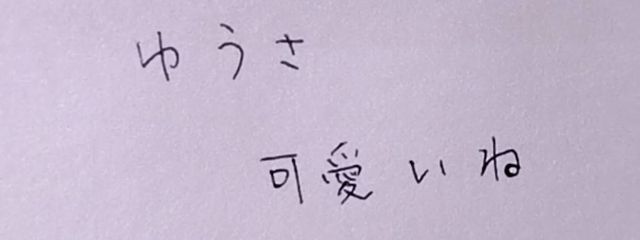 ゆうさ
可愛いね